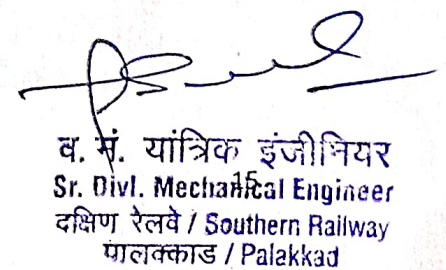 व. मं. यांत्रिक इंजीनियर
Sr. Divl. Mechanical Engineer
दक्षिण रेलवे / Southern Railway
पालक्काड / Palakkad